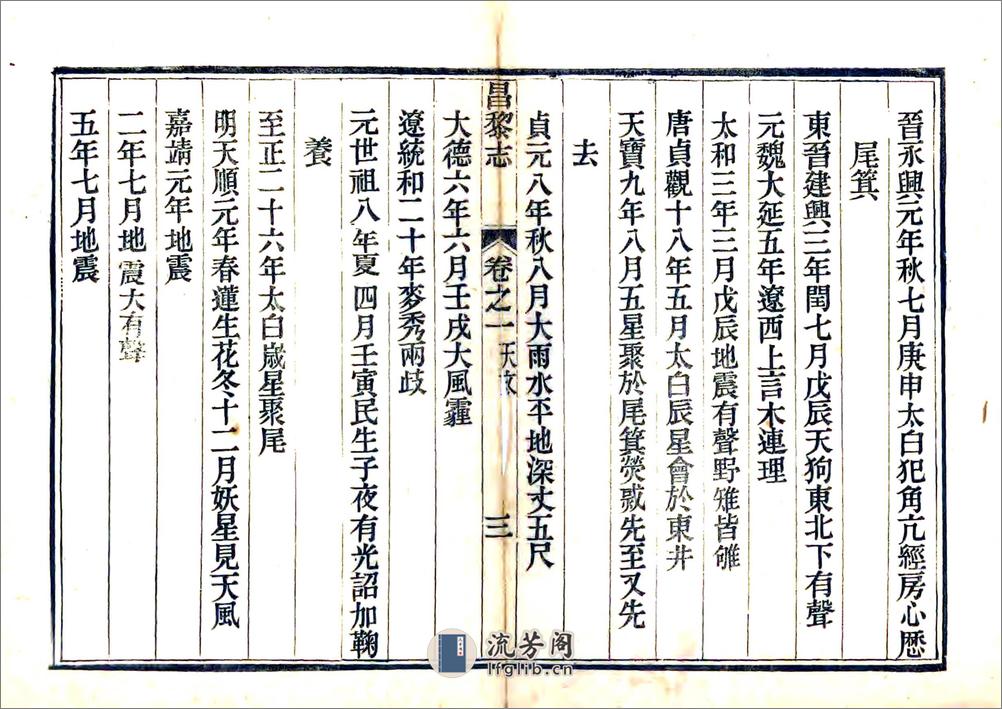 晉永興元年秋七月庚申太白犯角亢經房心歷
尾箕
東晉建興三年閏七月戊辰天狗東北下有聲
元魏大延五年遼西上言木連理
太和三年三月戊辰地震有聲野雉皆雊
唐貞觀十八年五月太白辰星會於東井
天寶九年八月五星聚於尾箕熒惑先至又先
去
貞元八年秋八月大雨水平地深丈五尺
昌黎志 卷之一 天文 三
大德六年六月壬戌大風霾
遼統和二十年麥秀兩歧
元世祖八年夏四月壬寅民生子夜有光詔加鞠
養
至正二十六年太白歲星聚尾
明天順元年春蓮生花冬十二月妖星見天風
嘉靖元年地震
二年七月地震大有聲
五年七月地震
流芳阁
lfglib.cn